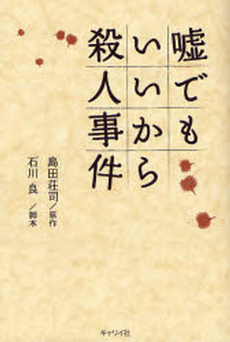 嘘でも
いいから
殺人事件
島田荘司/原作
石川良/脚本
ギャリイ社